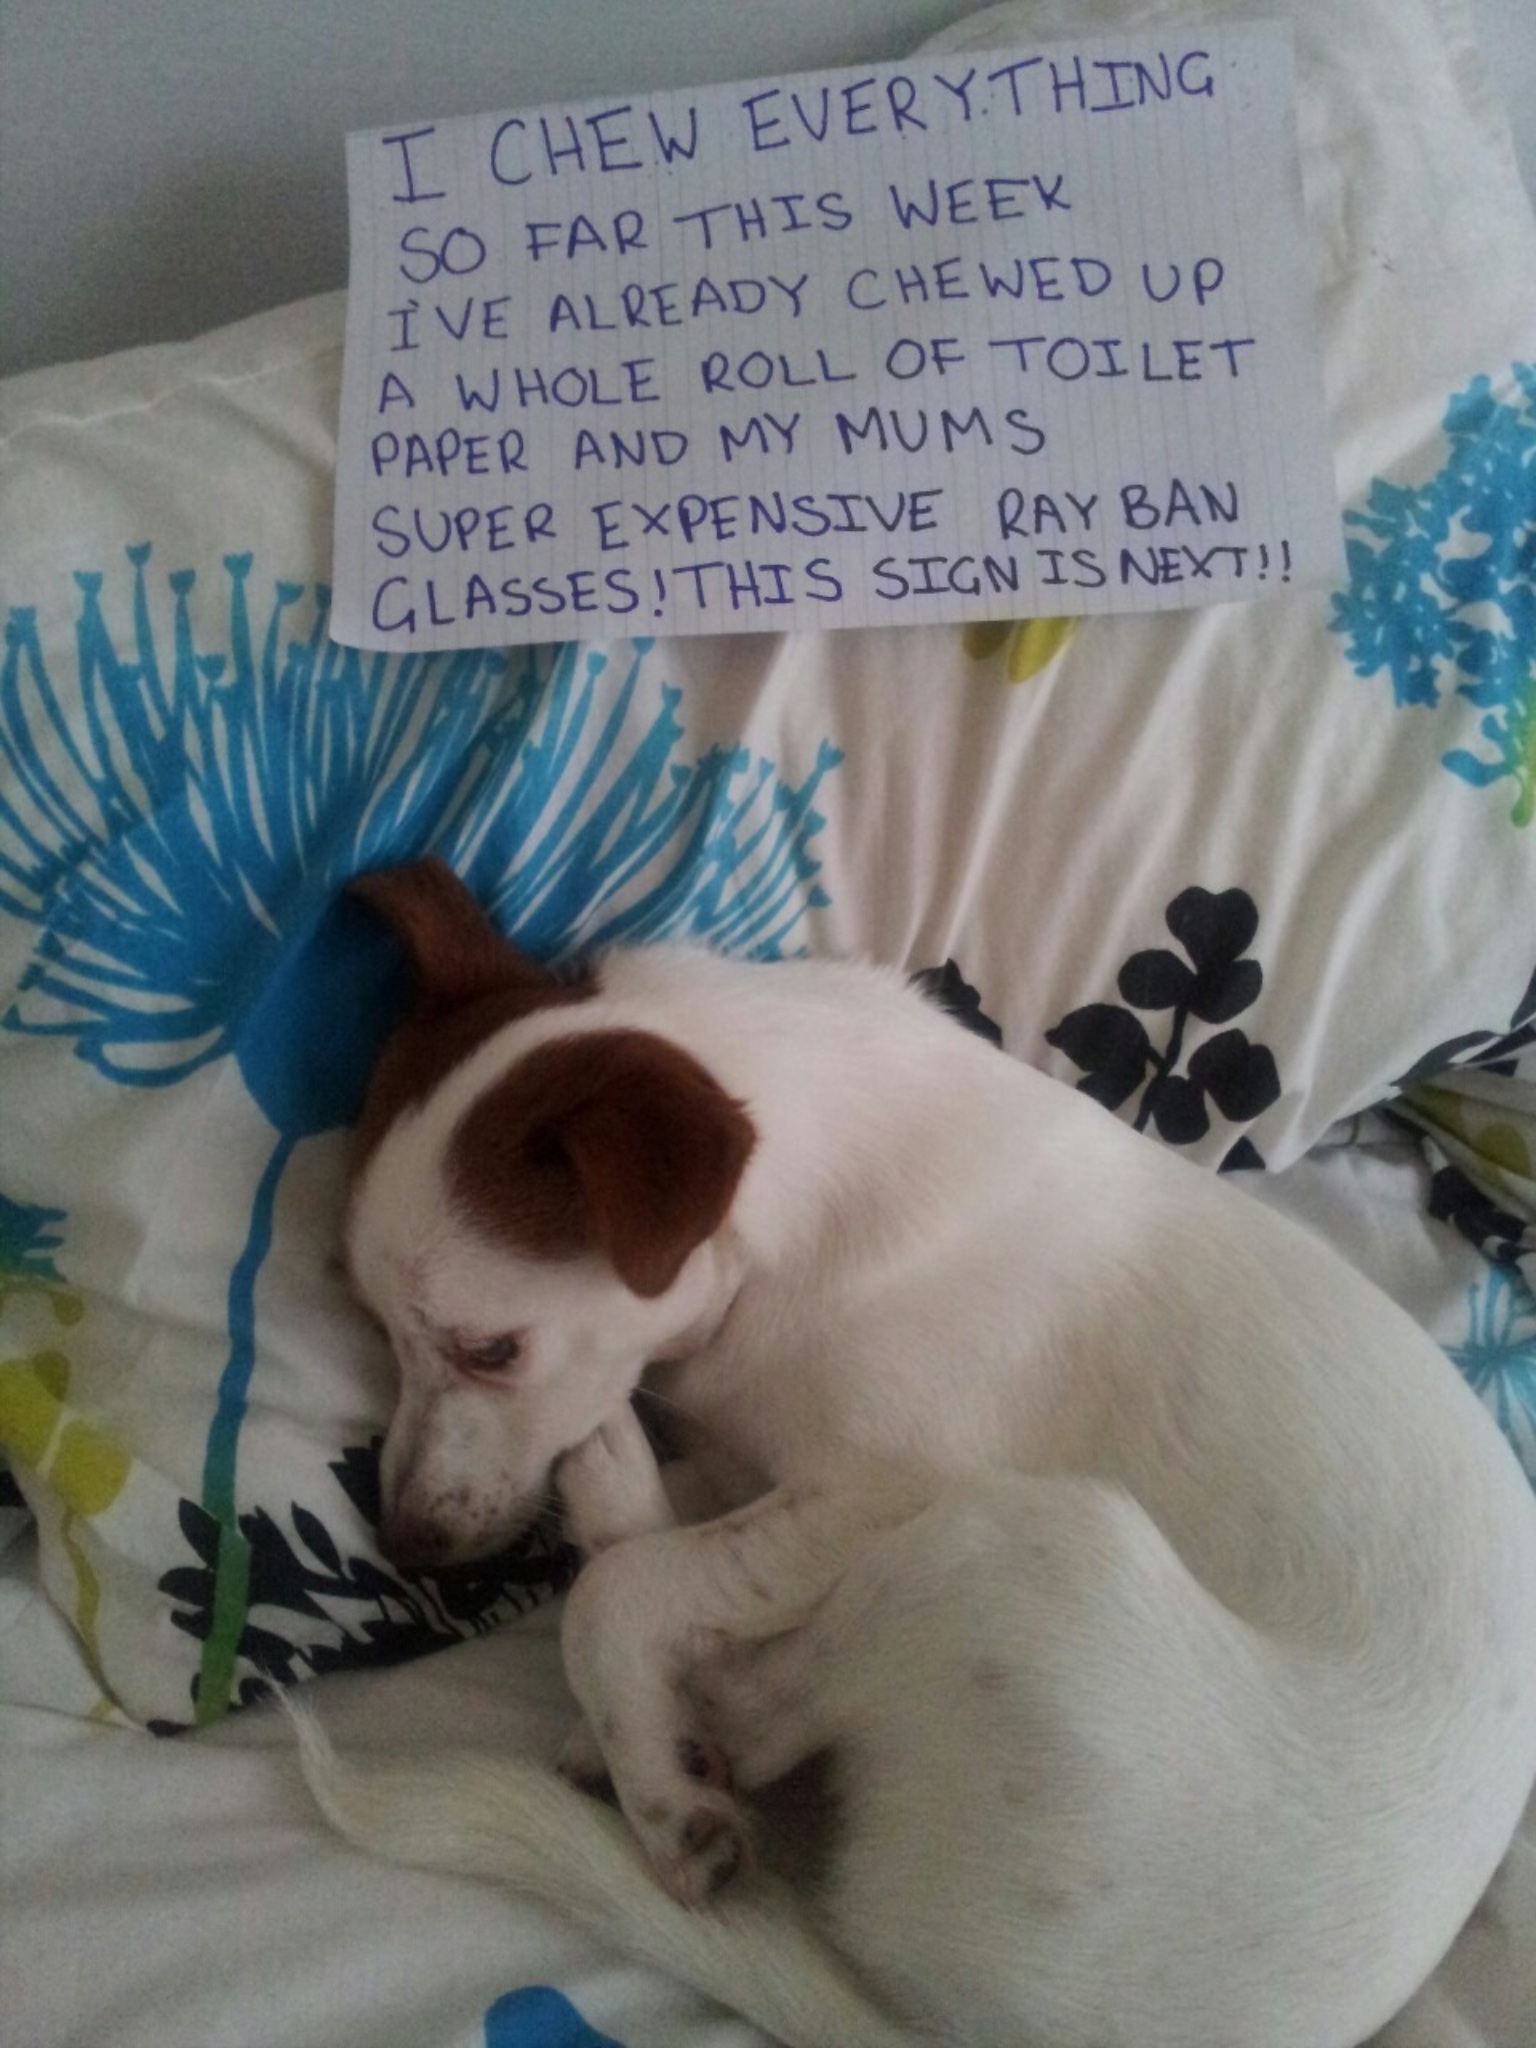 I CHEW EVERYTHING
SO FAR THIS WEEK
I'VE ALREADY CHEWED UP
A WHOLE ROLL OF TOILET
PAPER AND MY MUMS
SUPER EXPENSIVE RAY BAN
GLASSES! THIS SIGN IS NEXT!!